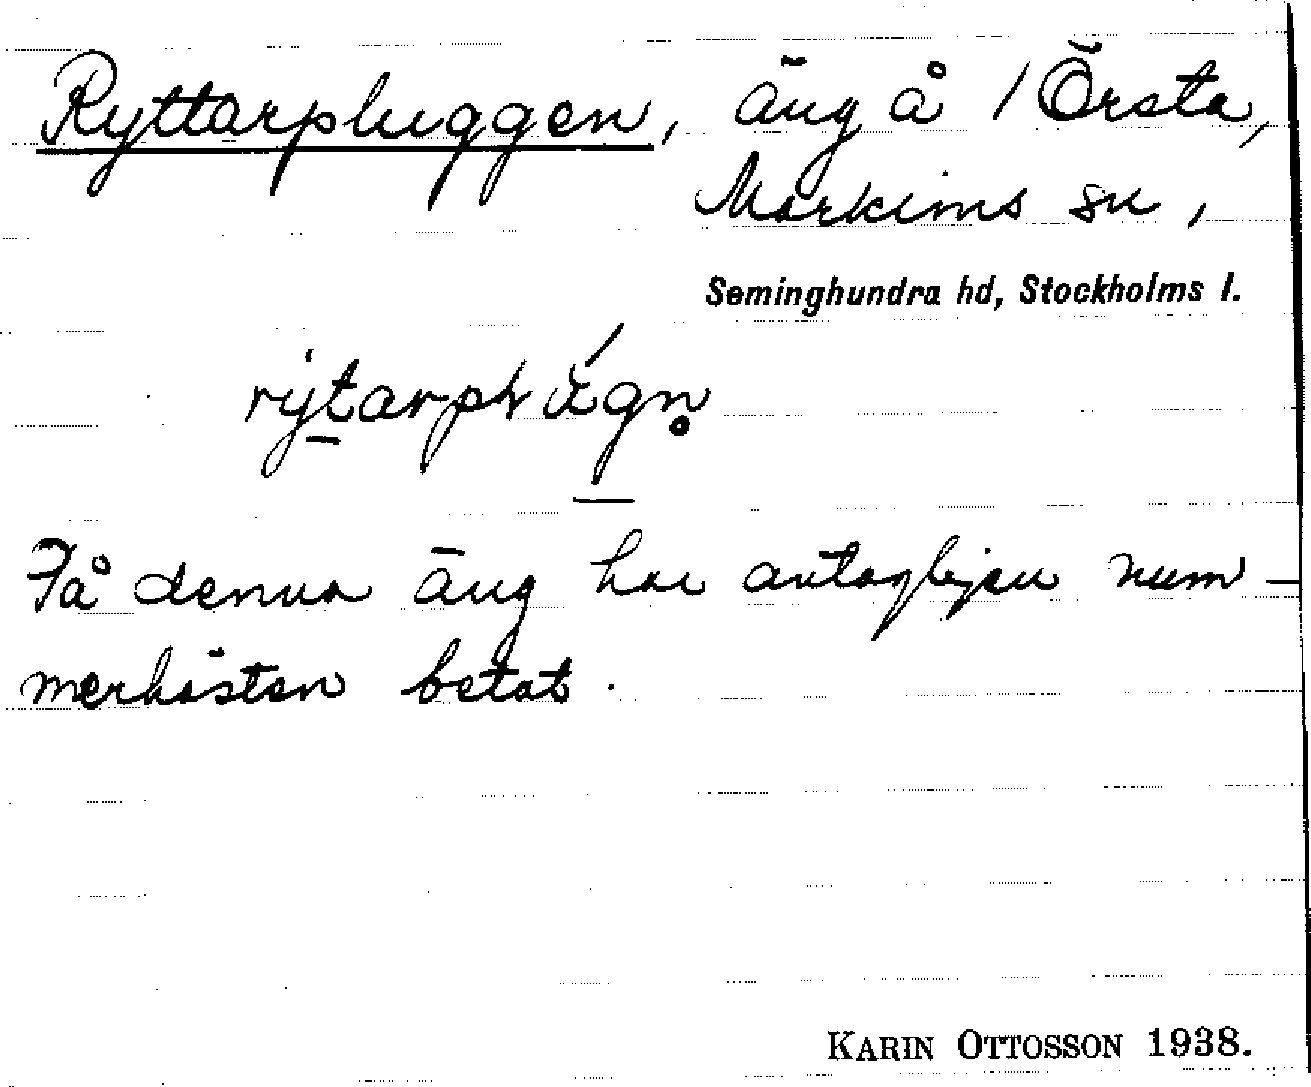 Ryttarpluggen, äng å 1 Örsta,
Markims sn,
Seminghundra hd, Stockholms l.
På denna äng har antagligen num-
merhästen betat.
KARIN OTTOSSON 1938.